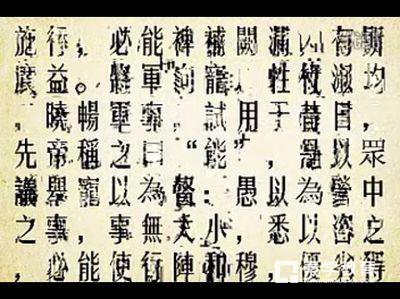 施行，必能裨補闕漏，有
益。將軍向寵，性行淑均，
，曉暢軍事，試用于昔日，
先帝稱之曰“能”，是以眾
議舉寵以為督：愚以為營中之
事，事無大小，悉以咨之，
必能使行陣和穆，優劣得